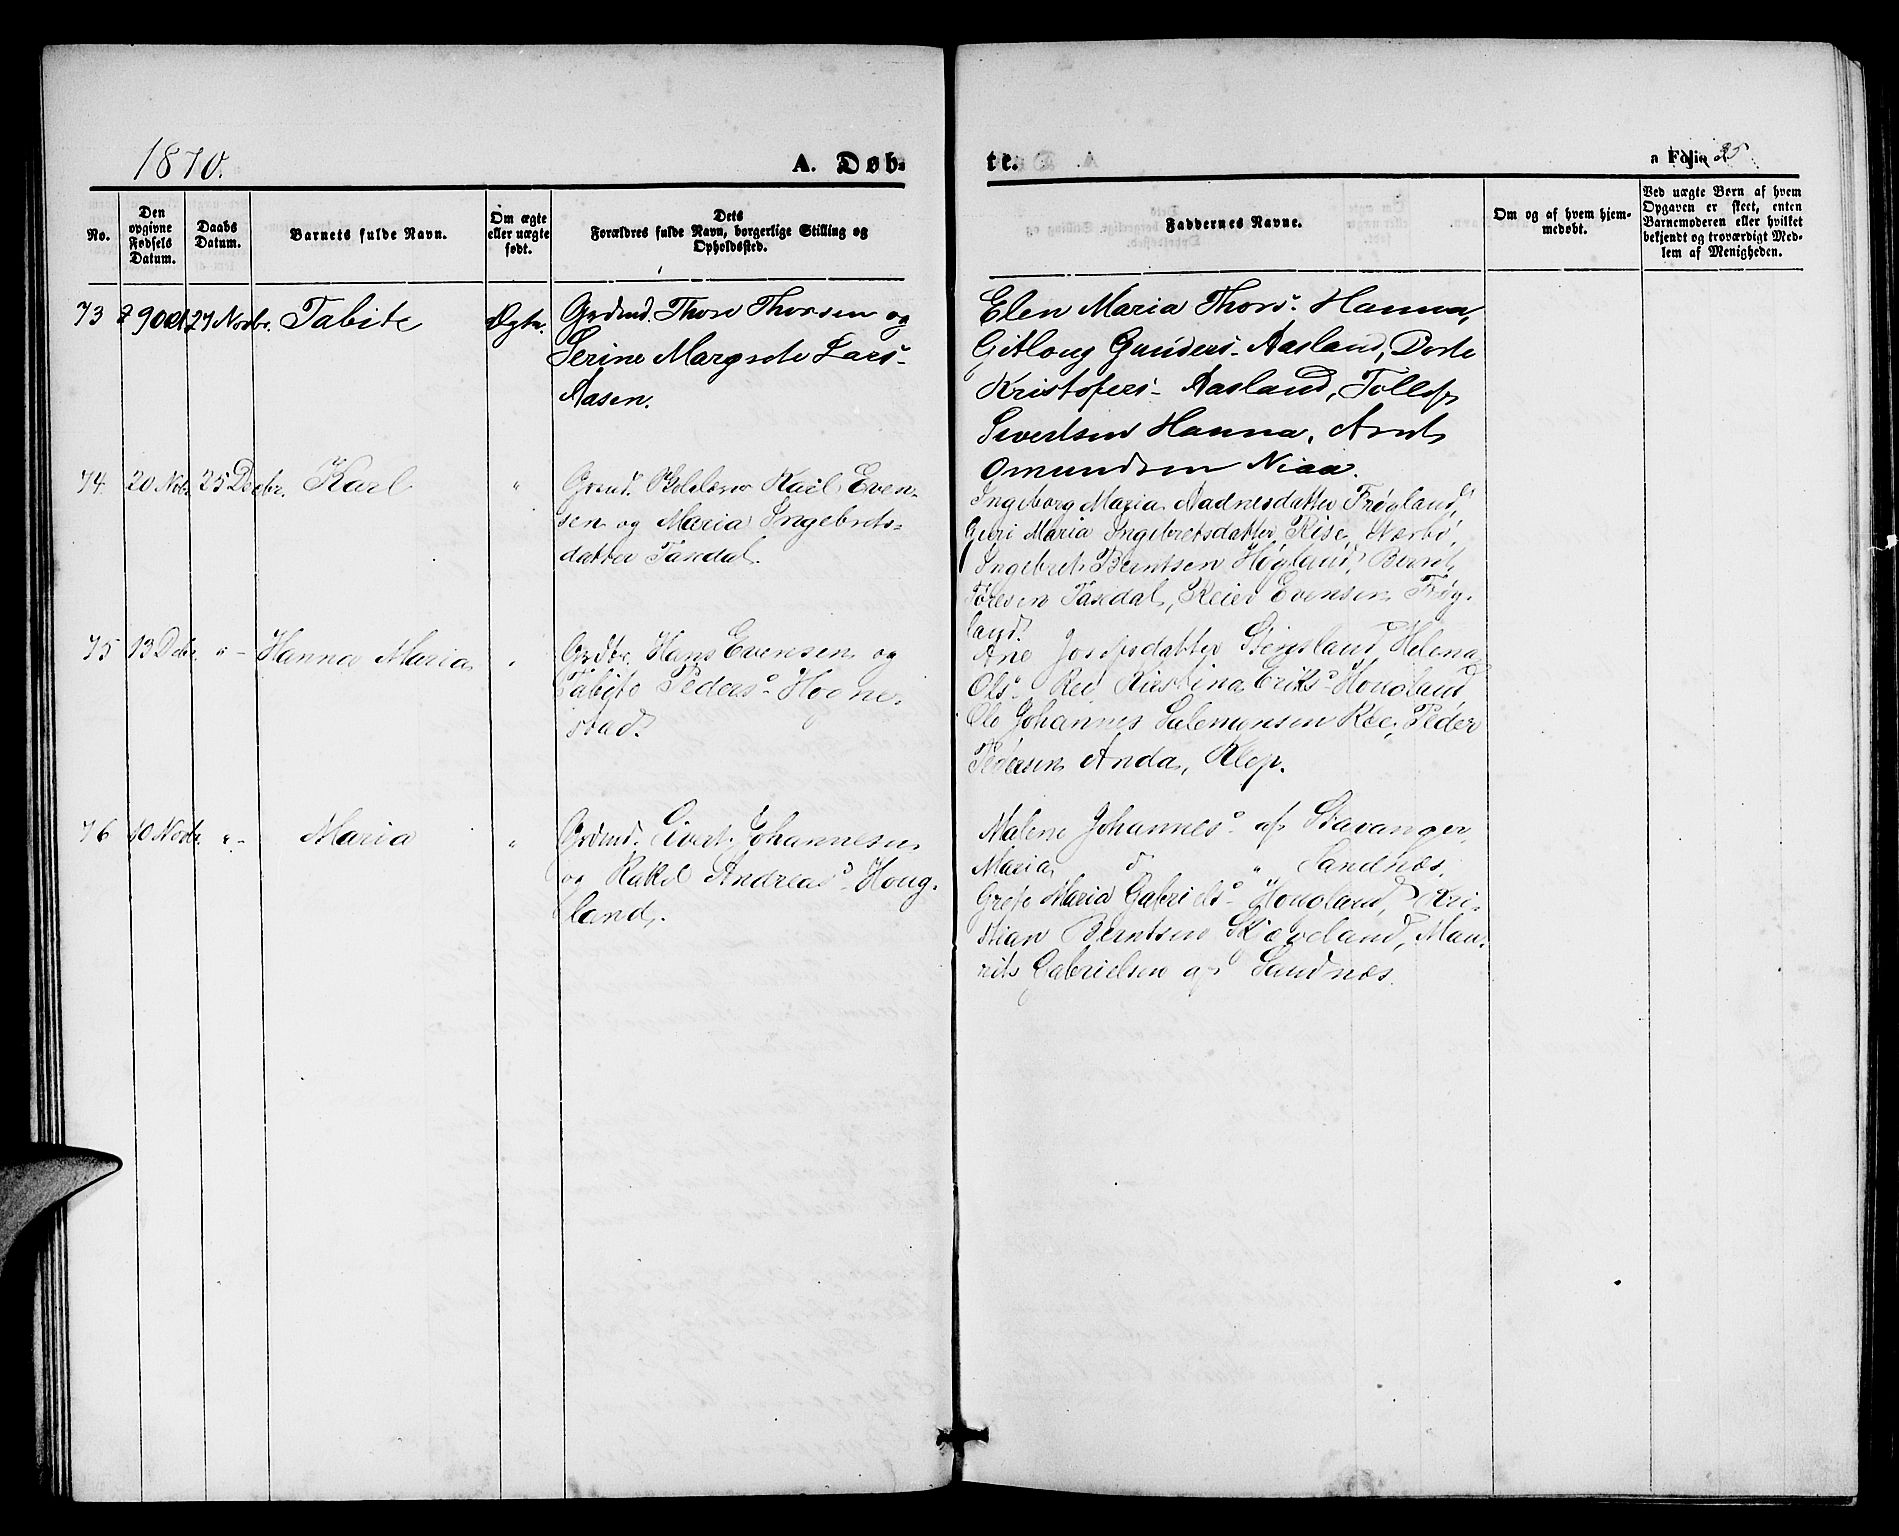 1870.
A. Døb-
te.
Folio 25
No.
Den opgivne Fødsels Datum.
Daabs Datum.
Barnets fulde Navn.
Om ægte eller uægte født.
Dets Forældres fulde Navn, borgerlige Stilling og Opholdssted.
Faddernes Navne.
Om og af hvem hjemmedøbt.
Ved uægte Børn af hvem Opgaven er skeet, enten Barnemoderen eller hvilket bekjendt og troværdigt Medlem af Menigheden.
73 29 Oct. 27 Novbr. Tabite Ægte. Grdmd. Thore Thorsen og
Serine Margrete Lars-
Aasen.
Elen Maria Thors. Hanna,
Gitlaug Gunders- Aasland, Dorte
Kristofers- Aasland, Tollef
Sivertsen Hanna, Arnt
Omundsen Niaa.
74. 20 Nobr 25 Decbr. Karl " Grmd. Skolelærer Karl Even-
sen og Maria Ingebrets-
datter Taxdal.
Ingeborg Maria Aadnesdatter Frøyland,
Guri Maria Ingebretsdatter, Rise, Nærbø,
Ingebret Berntsen Høyland, Bernt
Tøresen Taxdal, Reier Evensen Frøy-
land.
75 13 Debr. " - Hanna Maria " Grdbr. Hans Evensen og
Tabite Peders- Hogne-
stad.
Ane Josefsdatter Stensland, Helena
Ols- Roe, Kirstina Eriks- Hougland
Ole Johannes Salemonsen Roe, Peder
Pedersen Anda, Klep.
76 10 Novbr. " - Maria " Grdmd. Sivert Johannesen
og Rakel Andreas- Houg-
land.
Malene Johannes- af Stavanger,
Maria d " Sandnæs,
Grete Maria Gabriels- Hougland, Kri-
stian Berntsen Skjæveland, Mau-
rits Gabrielsen af Sandnæs.